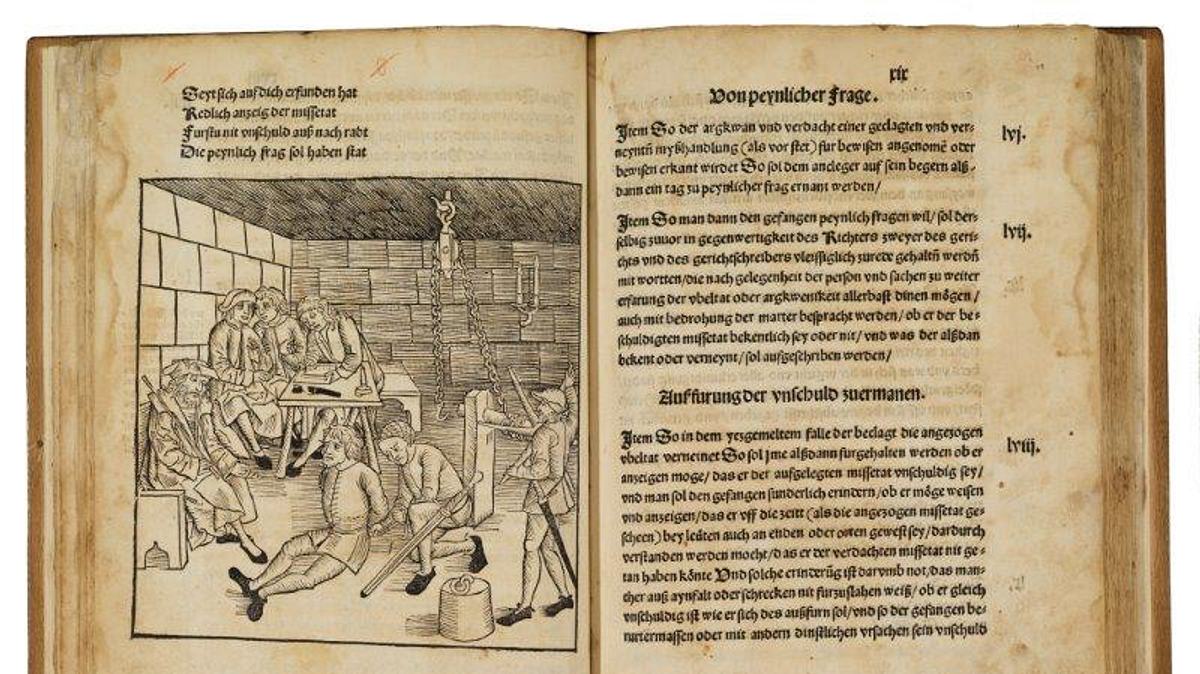 Seyt sich auf dich erfunden hat
Redlich anzeig der missetat
Furstu nit vnschuld auß nach radt
Die peynlich frag sol haben stat
xix
Von peynlicher Frage.
Item So der argkwan vnd verdacht einer geclagten vnd ver-
neyntñ myßhandlung (als vor stet) fur bewisen angenomē oder
bewisen erkant wirdet So sol dem ancleger auf sein begern alß-
dann ein tag zu peynlicher frag ernant werden/
lvj.
Item So man dann den gefangen peynlich fragen wil/ sol der-
selbig zuuor in gegenwertigkeit des Richters zweyer des geri-
chts vnd des gerichtschreibers vleissiglich zurede gehaltñ werdñ
mit wortten/die nach gelegenheit der person vnd sachen zu weiter
erfarung der vbeltat oder argkwenikeit allerbast dinen mögen/
auch mit bedrohung der marter bespracht werden/ ob er der be-
schuldigten missetat bekentlich sey oder nit/ vnd was der alßdan
bekent oder verneynt/ sol aufgeschriben werden/
lvij.
Auffurung der vnschuld zuermanen.
Item So in dem yezgemeltem falle der beclagt die angezogen
vbeltat verneinet So sol jme alßdann furgehalten werden ob er
anzeigen moge/ das er der aufgelegten missetat vnschuldig sey/
vnd man sol den gefangen sunderlich erindern/ob er möge weisen
vnd anzeigen/das er vff die zeitt (als die angezogen missetat ge-
scheen) bey leüten auch an enden oder orten gewest sey/dardurch
verstanden werden mocht/das er der verdachten missetat nit ge-
tan haben könte Vnd solche erinderūg ist darumb not/das man-
cher auß aynfalt oder schrecken nit furzuslahen weiß/ ob er gleich
vnschuldig ist wie er sich des außfurn sol/vnd so der gefangen be-
rurtermassen oder mit andern dinstlichen vrsachen sein vnschuld
lviij.